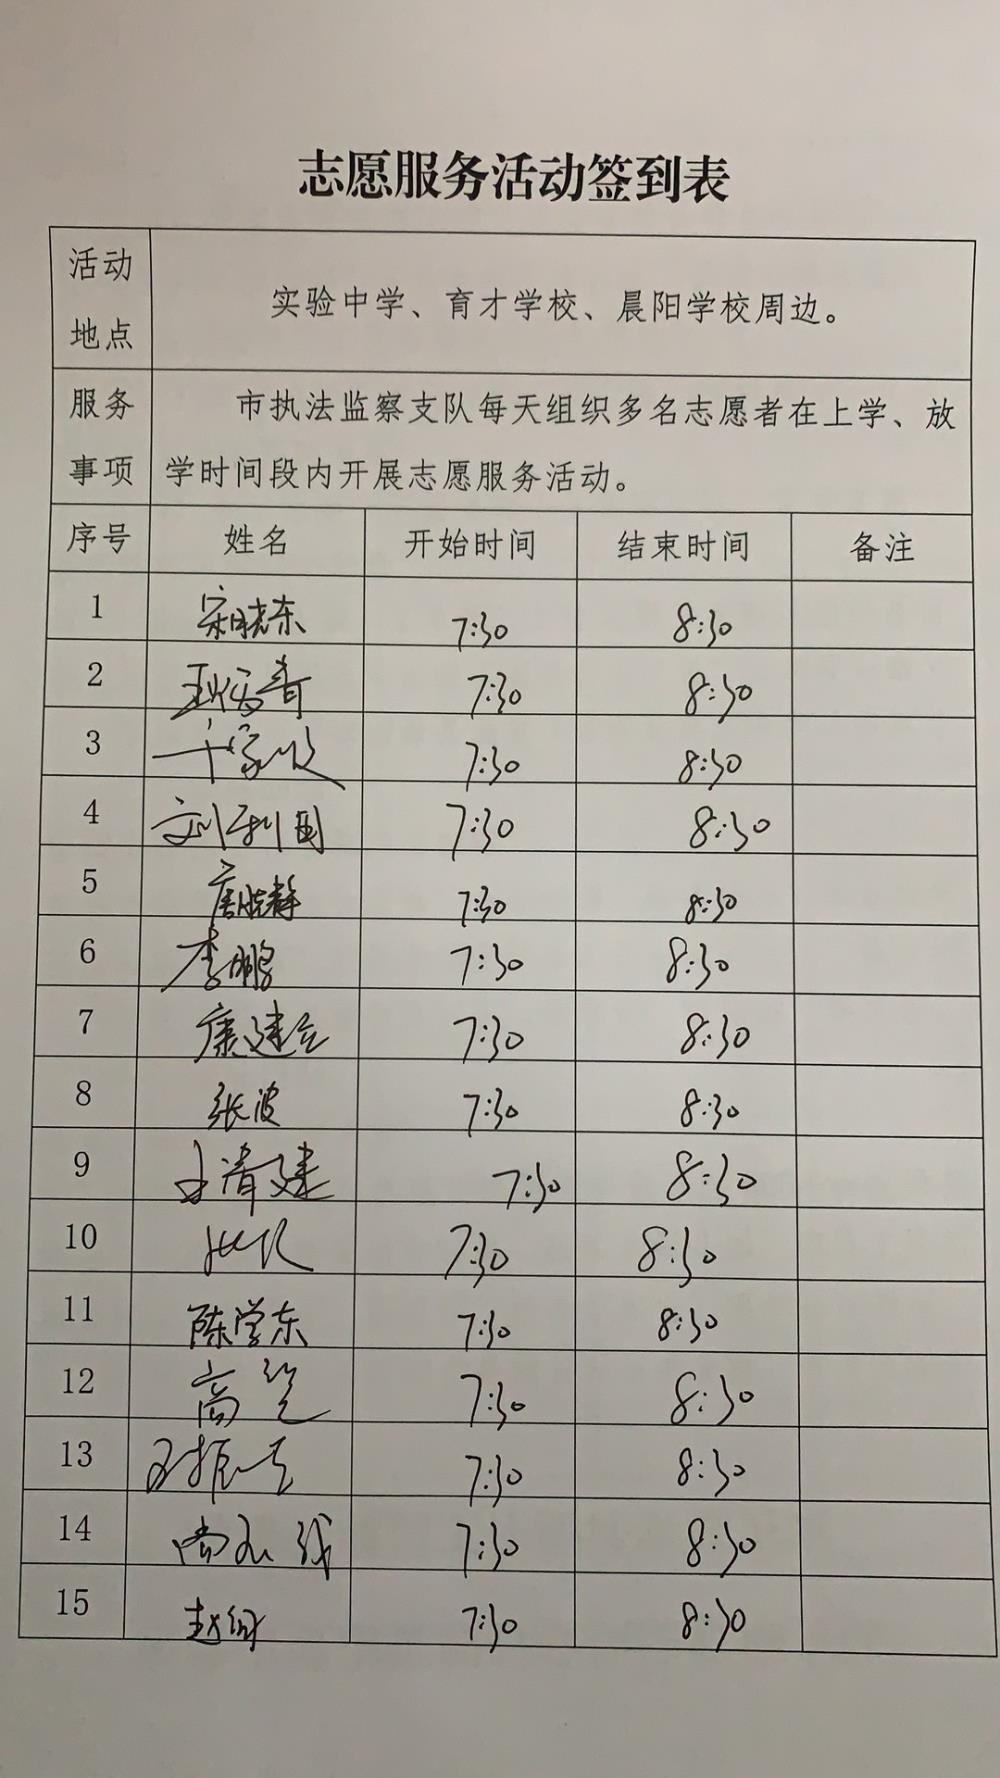 志愿服务活动签到表
活动地点 实验中学、育才学校、晨阳学校周边。
服务事项 市执法监察支队每天组织多名志愿者在上学、放
学时间段内开展志愿服务活动。
序号 姓名 开始时间 结束时间 备注
1 宋晓东 7:30 8:30
2 7:30 8:30
3 7:30 8:30
4 刘利国 7:30 8:30
5 唐晓静 7:30 8:30
6 李鹏 7:30 8:30
7 康建立 7:30 8:30
8 张波 7:30 8:30
9 王清建 7:30 8:30
10 7:30 8:30
11 陈学东 7:30 8:30
12 高 7:30 8:30
13 7:30 8:30
14 7:30 8:30
15 赵 7:30 8:30